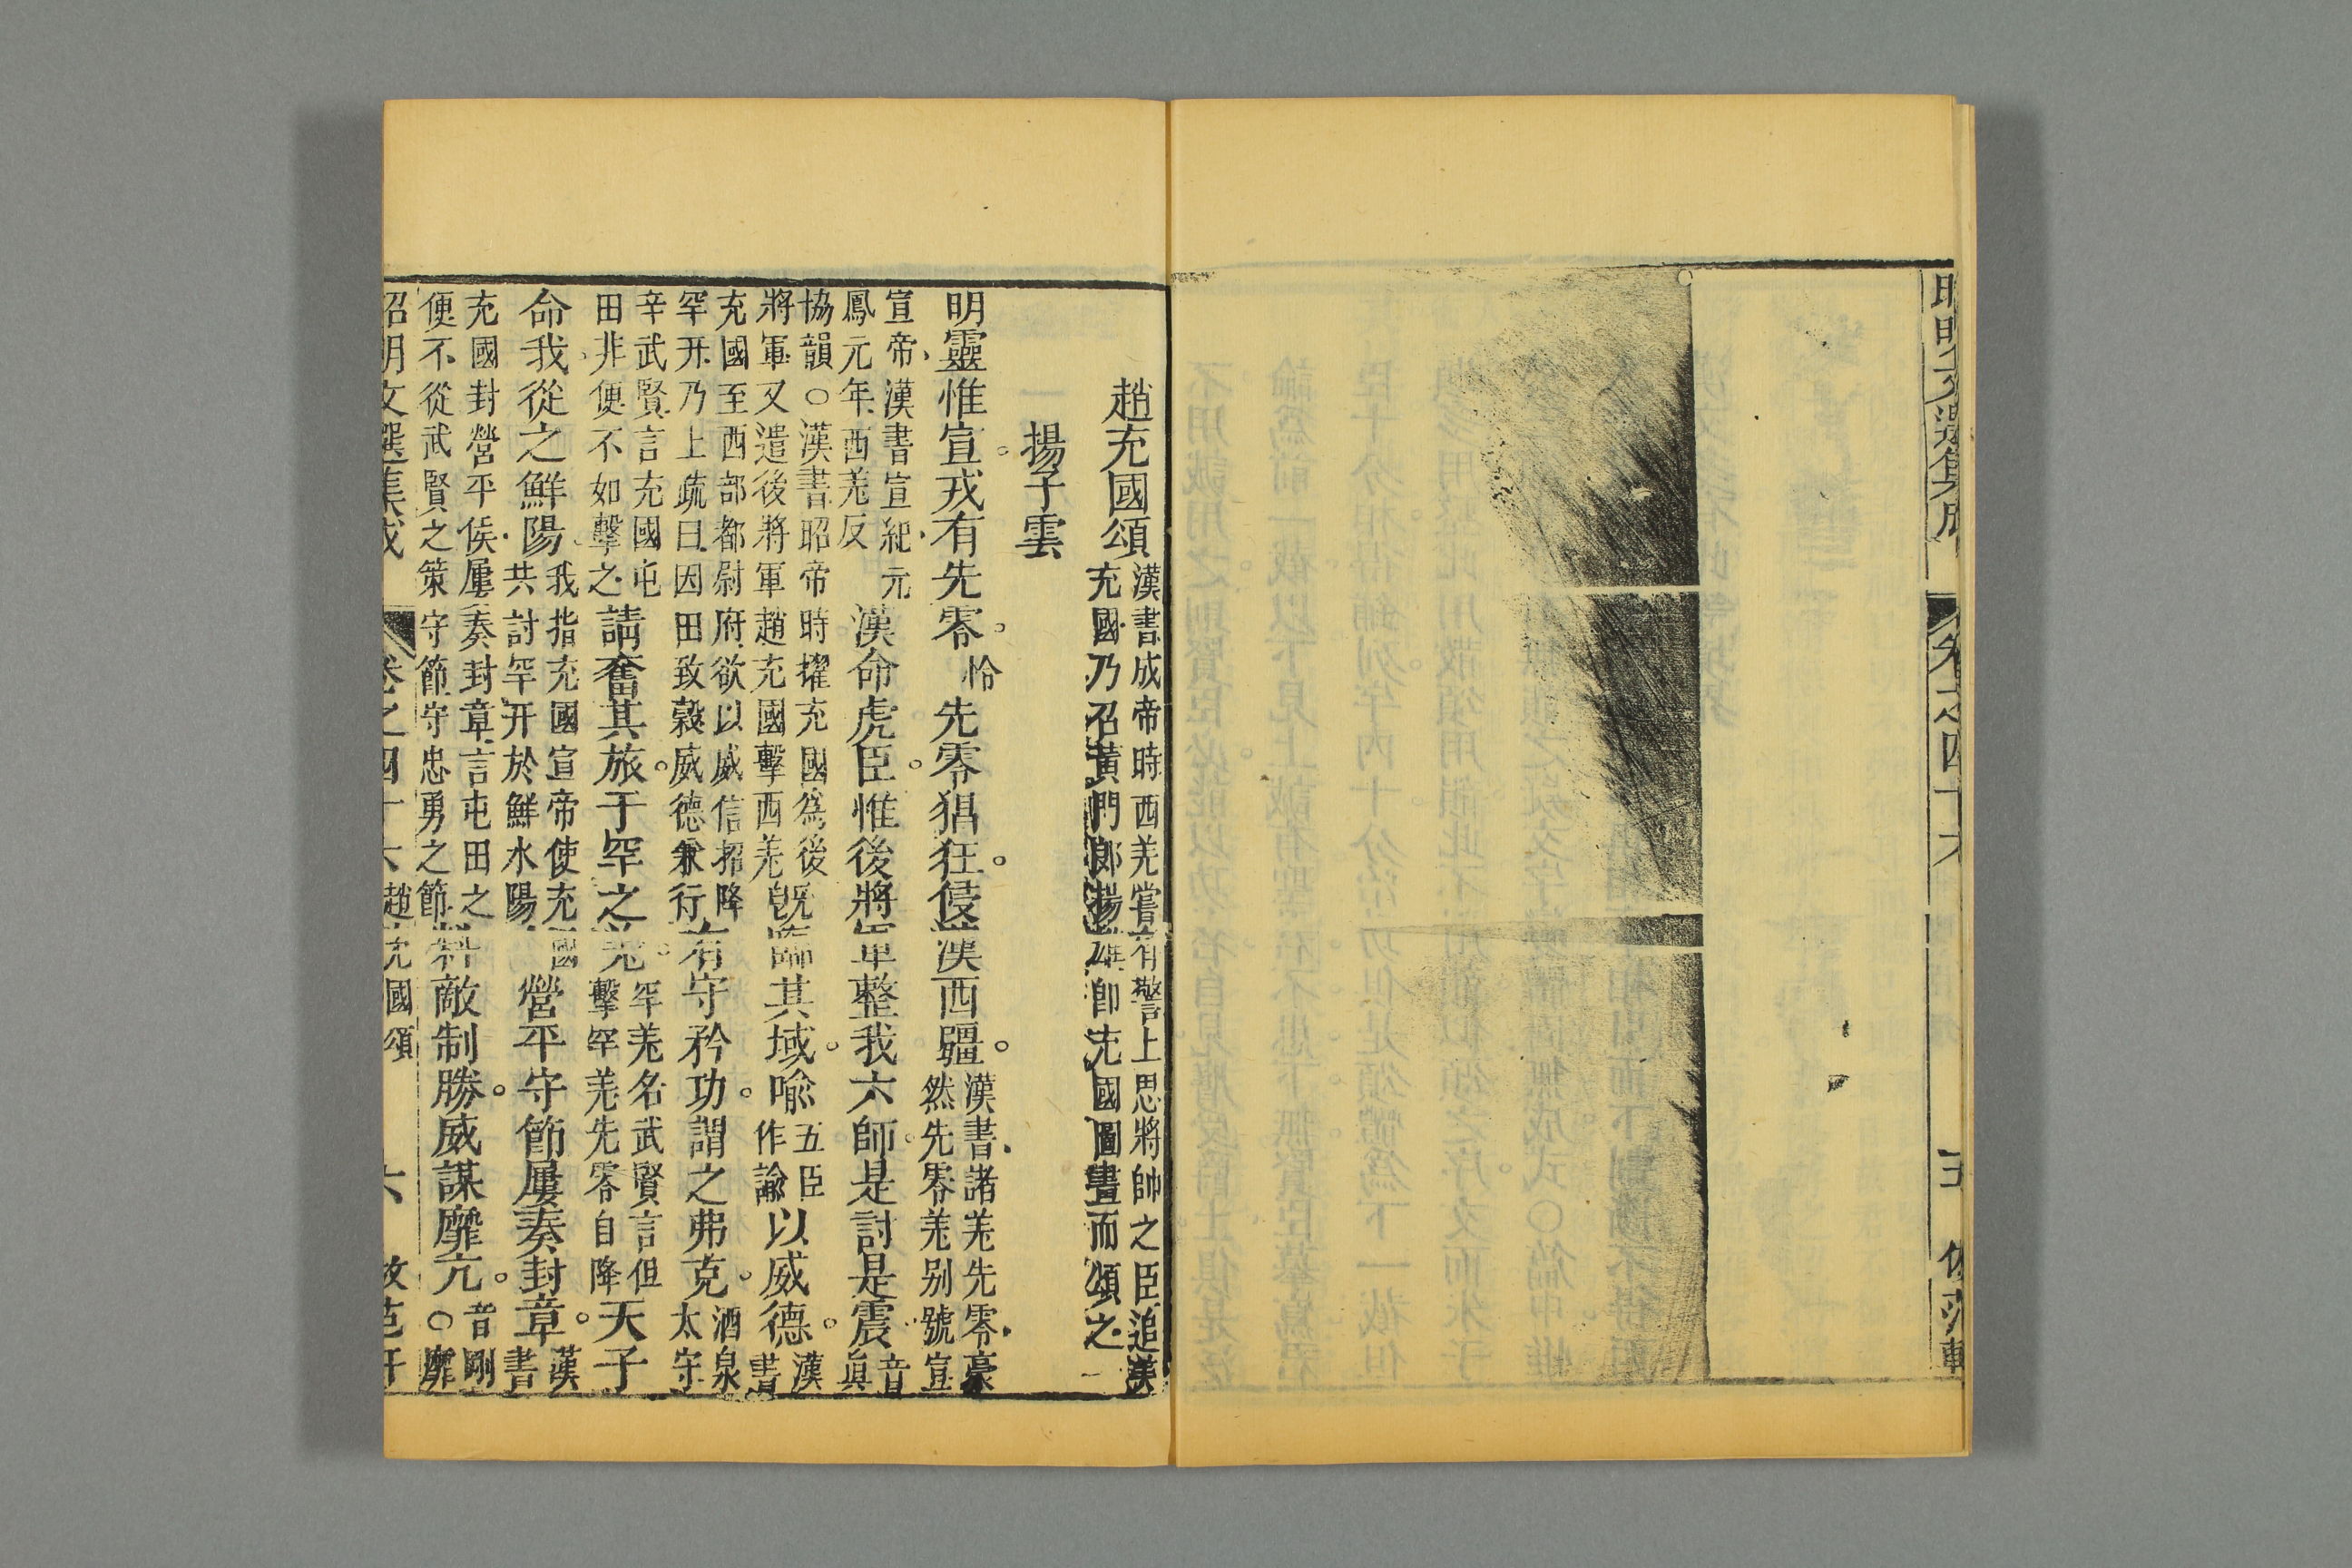 昭明文選集成　卷之四十六　五　倣范軒
趙充國頌
漢書成帝時西羌嘗有警上思將帥之臣追美
充國乃召黃門郎揚雄卽充國圖畫而頌之
揚子雲
明靈惟宣。戎有先零。怜先零猖狂。侵漢西疆。
漢書諸羌先零豪
然先零羌别號宣
宣帝漢書宣紀元
鳳元年西羌反
漢命虎臣。惟後將軍整我六師。是討是震
音
眞
協韻○漢書昭帝時擢充國爲後
將軍又遣後將軍趙充國擊西羌
旣臨其域。喩
五臣
作諭
以威德。
漢
書
充國至西部都尉府欲以威信招降
罕开乃上疏曰因田致穀威德兼行
有守矜功。謂之弗克。
酒泉
太守
辛武賢言充國屯
田非便不如擊之
請奮其旅。于罕之羌。
罕羌名武賢言但
擊罕羌先零自降
天子
命我。從之鮮陽。
我指充國宣帝使充國
共討罕开於鮮水陽
營平守節屢奏封章。
漢
書
充國封營平侯屢奏封章言屯田之
便不從武賢之策守節守忠勇之節
料敵制勝。威謀靡亢。
音剛
○靡
昭明文選集成　卷之四十六　趙充國頌　六　倣范軒